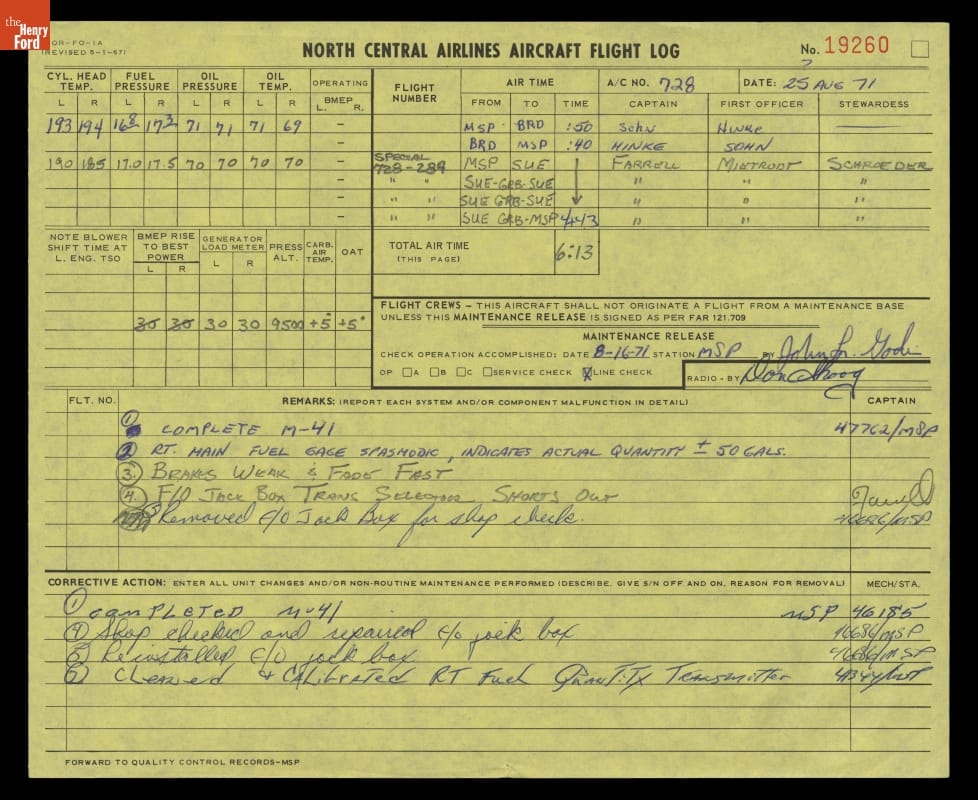 the Henry Ford
(REVISED 5-1-67)
NORTH CENTRAL AIRLINES AIRCRAFT FLIGHT LOG
No. 19260
CYL. HEAD TEMP. FUEL PRESSURE OIL PRESSURE OIL TEMP. OPERATING BMEP
L R L R L R L R L. R.
193 194 16.8 17.3 71 71 71 69 –
–
190 185 17.0 17.5 70 70 70 70 –
–
–
–
FLIGHT NUMBER
AIR TIME
A/C NO. 728
DATE: 25 AUG 71
FROM TO TIME CAPTAIN FIRST OFFICER STEWARDESS
MSP BRD :50 SOHN HINKE
BRD MSP :40 HINKE SOHN
SPECIAL
728-289 MSP SUE FARRELL MIETRODT SCHROEDER
" " SUE-GRB-SUE " " "
" " SUE GRB-SUE " " "
" " SUE GRB-MSP 4:43 " " "
NOTE BLOWER SHIFT TIME AT L. ENG. TSO
BMEP RISE TO BEST POWER
GENERATOR LOAD METER
PRESS ALT.
CARB. AIR TEMP.
OAT
L R L R
35 35 30 30 9500 +5° +5°
TOTAL AIR TIME
(THIS PAGE)
6:13
FLIGHT CREWS – THIS AIRCRAFT SHALL NOT ORIGINATE A FLIGHT FROM A MAINTENANCE BASE
UNLESS THIS MAINTENANCE RELEASE IS SIGNED AS PER FAR 121.709
MAINTENANCE RELEASE
CHECK OPERATION ACCOMPLISHED: DATE 8-16-71 STATION MSP BY John
OP A B C SERVICE CHECK X LINE CHECK RADIO - BY Don
FLT. NO. REMARKS: (REPORT EACH SYSTEM AND/OR COMPONENT MALFUNCTION IN DETAIL) CAPTAIN
1 COMPLETE M-41 47762/MSP
2 RT. MAIN FUEL GAGE SPASMODIC, INDICATES ACTUAL QUANTITY ± 50 GALS.
3. BRAKES WEAK & FADE FAST
4. F/O JACK BOX TRANS SELECTOR SHORTS OUT
5 Removed F/O Jack Box for shop check. 46686/MSP
CORRECTIVE ACTION: ENTER ALL UNIT CHANGES AND/OR NON-ROUTINE MAINTENANCE PERFORMED (DESCRIBE, GIVE S/N OFF AND ON, REASON FOR REMOVAL) MECH/STA.
1 COMPLETED M-41 MSP 46185
4 Shop checked and repaired F/O jack box 46686/MSP
5 Reinstalled F/O jack box 46686/MSP
2 CLEANED & CALIBRATED RT Fuel QUANTITY Transmitter
FORWARD TO QUALITY CONTROL RECORDS-MSP